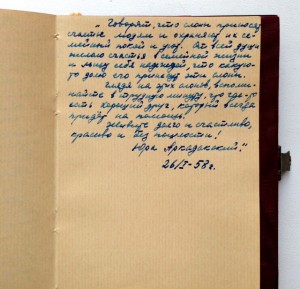 „Говорят, что слоны приносят
счастье людям и охраняют их се-
мейный покой и уют. От всей души
желаю счастья в семейной жизни
и льщу себя надеждой, что какую-то
долю его принесут эти слоны.
Глядя на этих слонов, вспоми-
найте в трудную минуту, что где-то
есть хороший друг, который всегда
придёт на помощь.
Живите долго и счастливо,
красиво и без пошлости!
Юра Аркадакский."
26/I-58г.